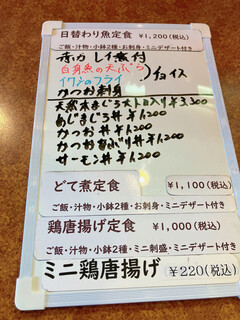 日替わり魚定食 ¥1,200(税込)
ご飯・汁物・小鉢2種・お刺身・ミニデザート付き
赤カレイ煮付
白身魚の天ぷら
イワシのフライ
チョイス
かつお刺身
天然本まぐろ大トロ入り丼 3,300
めじまぐろ丼 ¥1,200
かつお丼 ¥1,200
かつお
丼 ¥1,200
サーモン丼 ¥1,200
どて煮定食 ¥1,100(税込)
ご飯・汁物・小鉢2種・お刺身・ミニデザート付き
鶏唐揚げ定食 ¥1,000(税込)
ご飯・汁物・小鉢2種・ミニ刺盛・ミニデザート付き
ミニ鶏唐揚げ ¥220(税込)